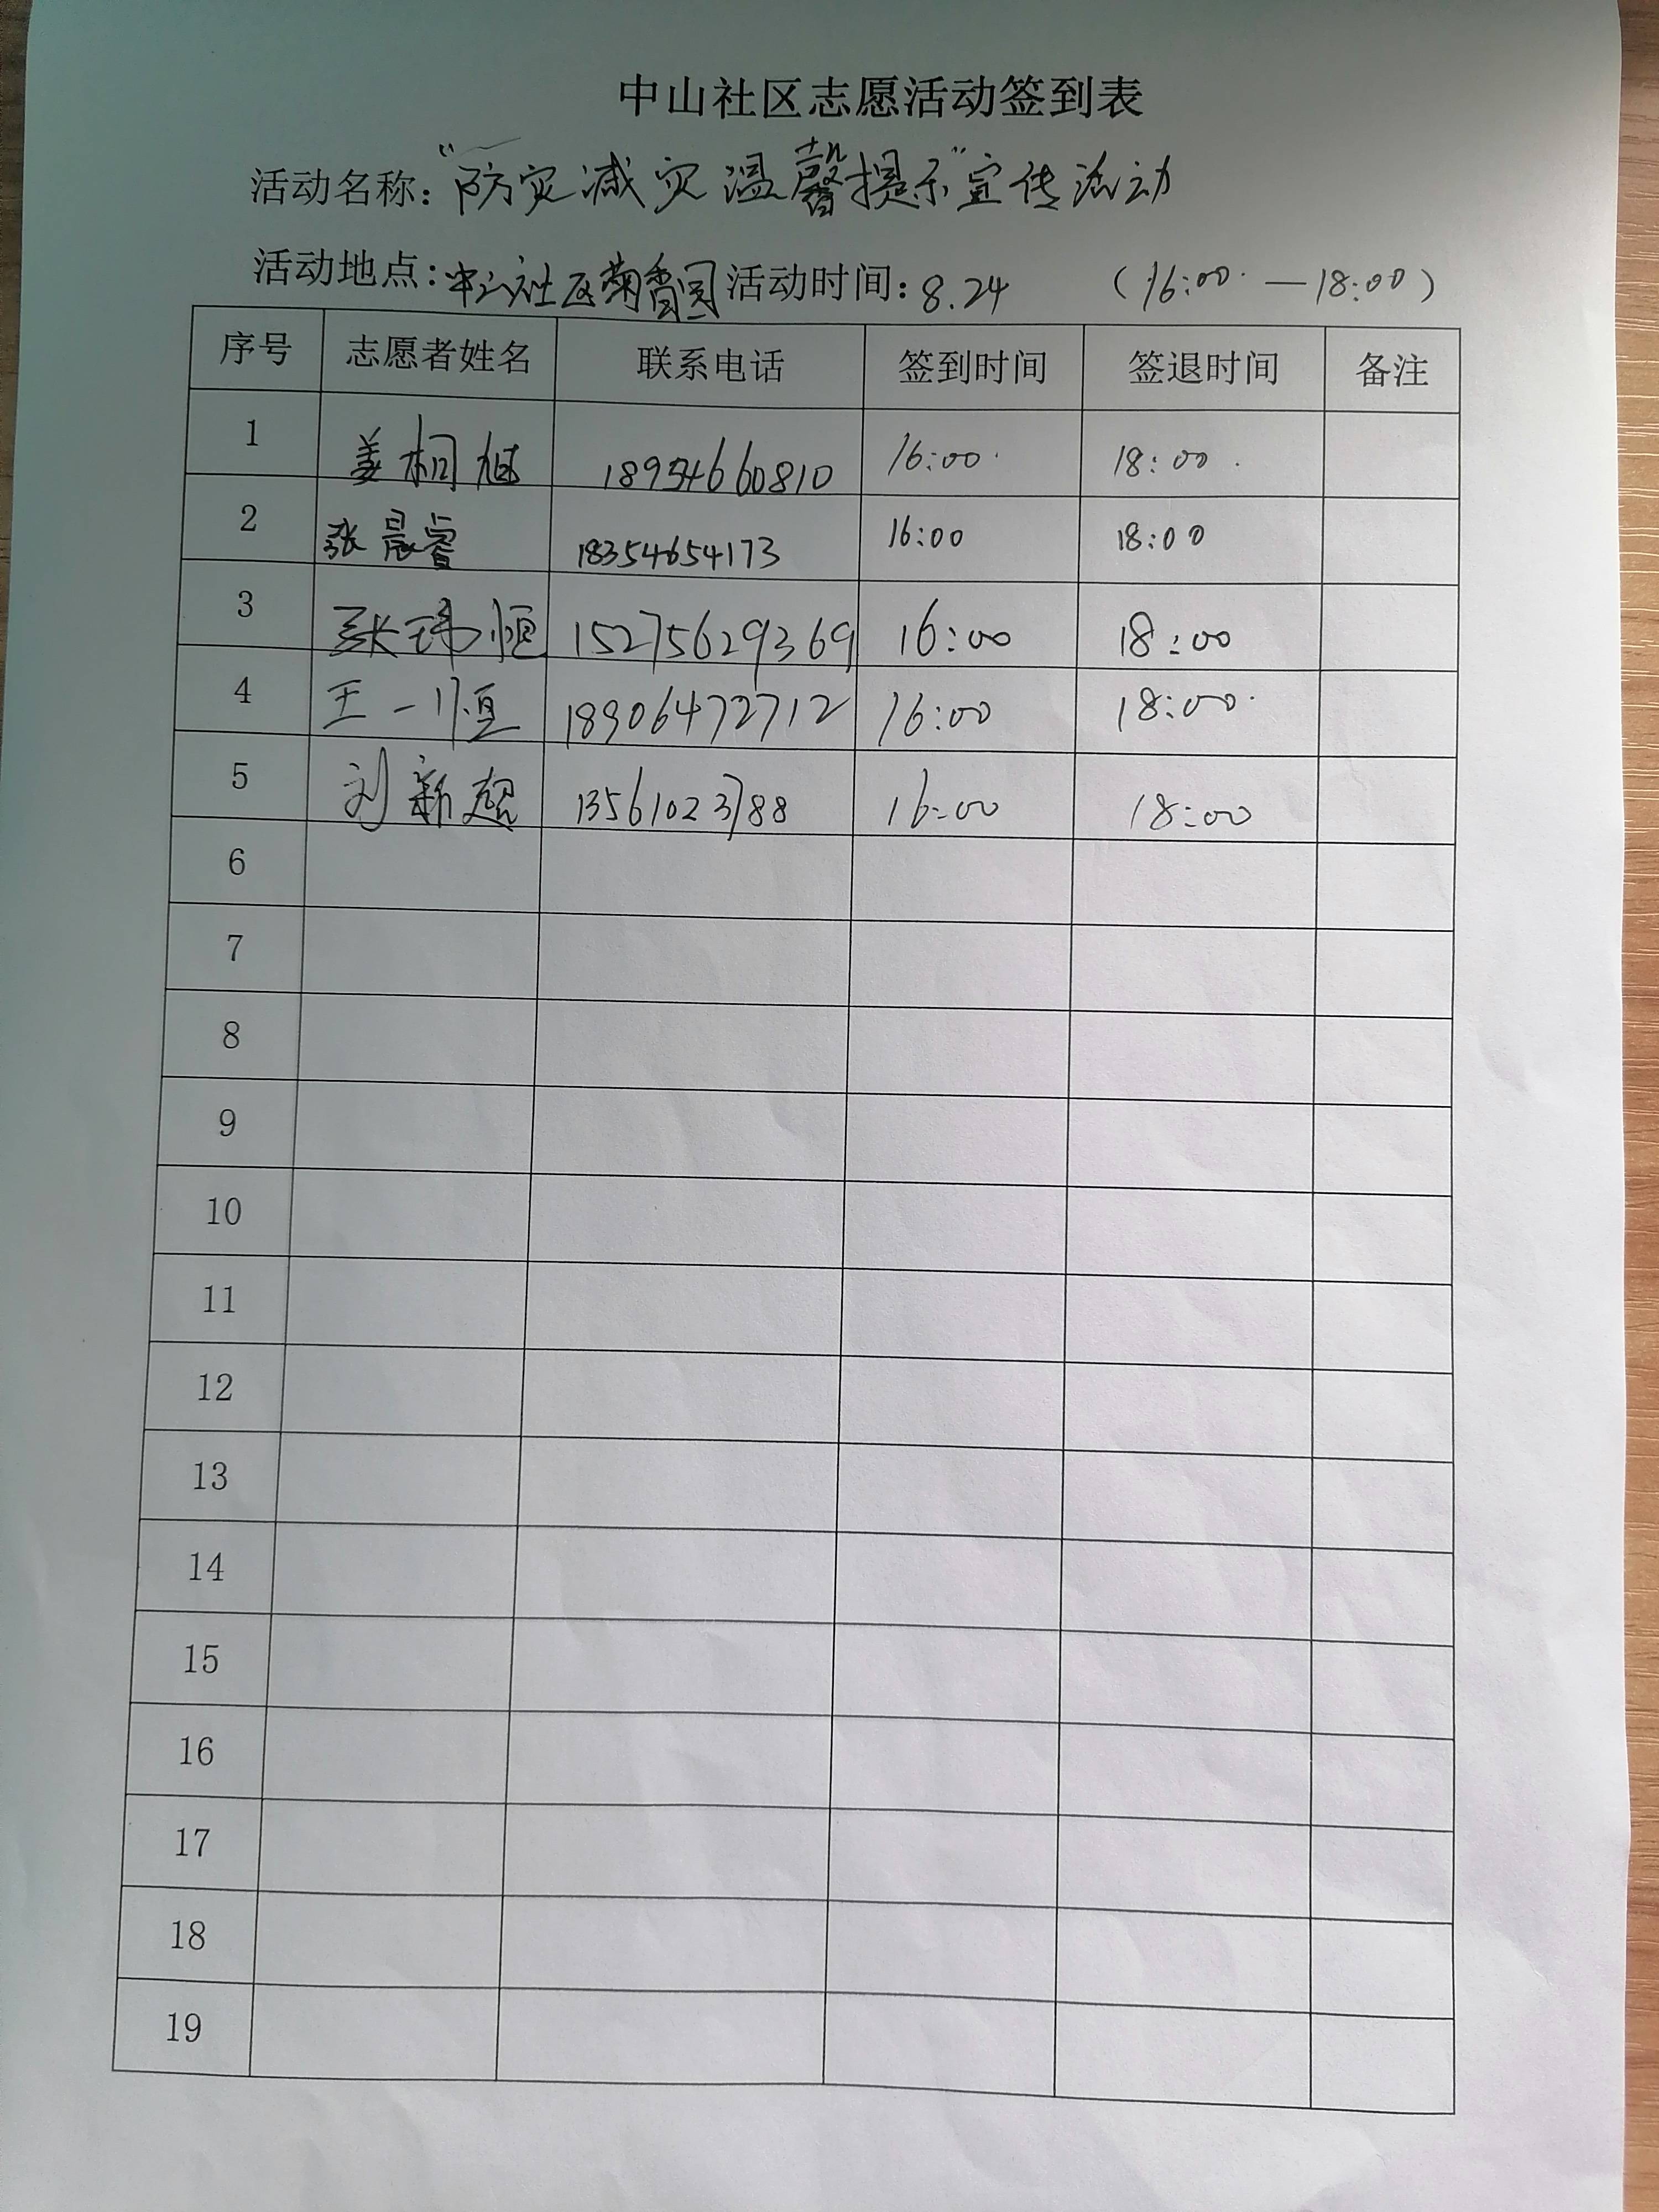 中山社区志愿活动签到表
活动名称：“防灾减灾温馨提示”宣传活动
活动地点：中山社区菊香园 活动时间：8.24 （16:00—18:00）
序号 志愿者姓名 联系电话 签到时间 签退时间 备注
1 姜桐旭 18954660810 16:00 18:00
2 张晨睿 18354654173 16:00 18:00
3 张玮恒 15275629369 16:00 18:00
4 王一恒 18906472712 16:00 18:00
5 刘新超 13561023788 16:00 18:00
6
7
8
9
10
11
12
13
14
15
16
17
18
19